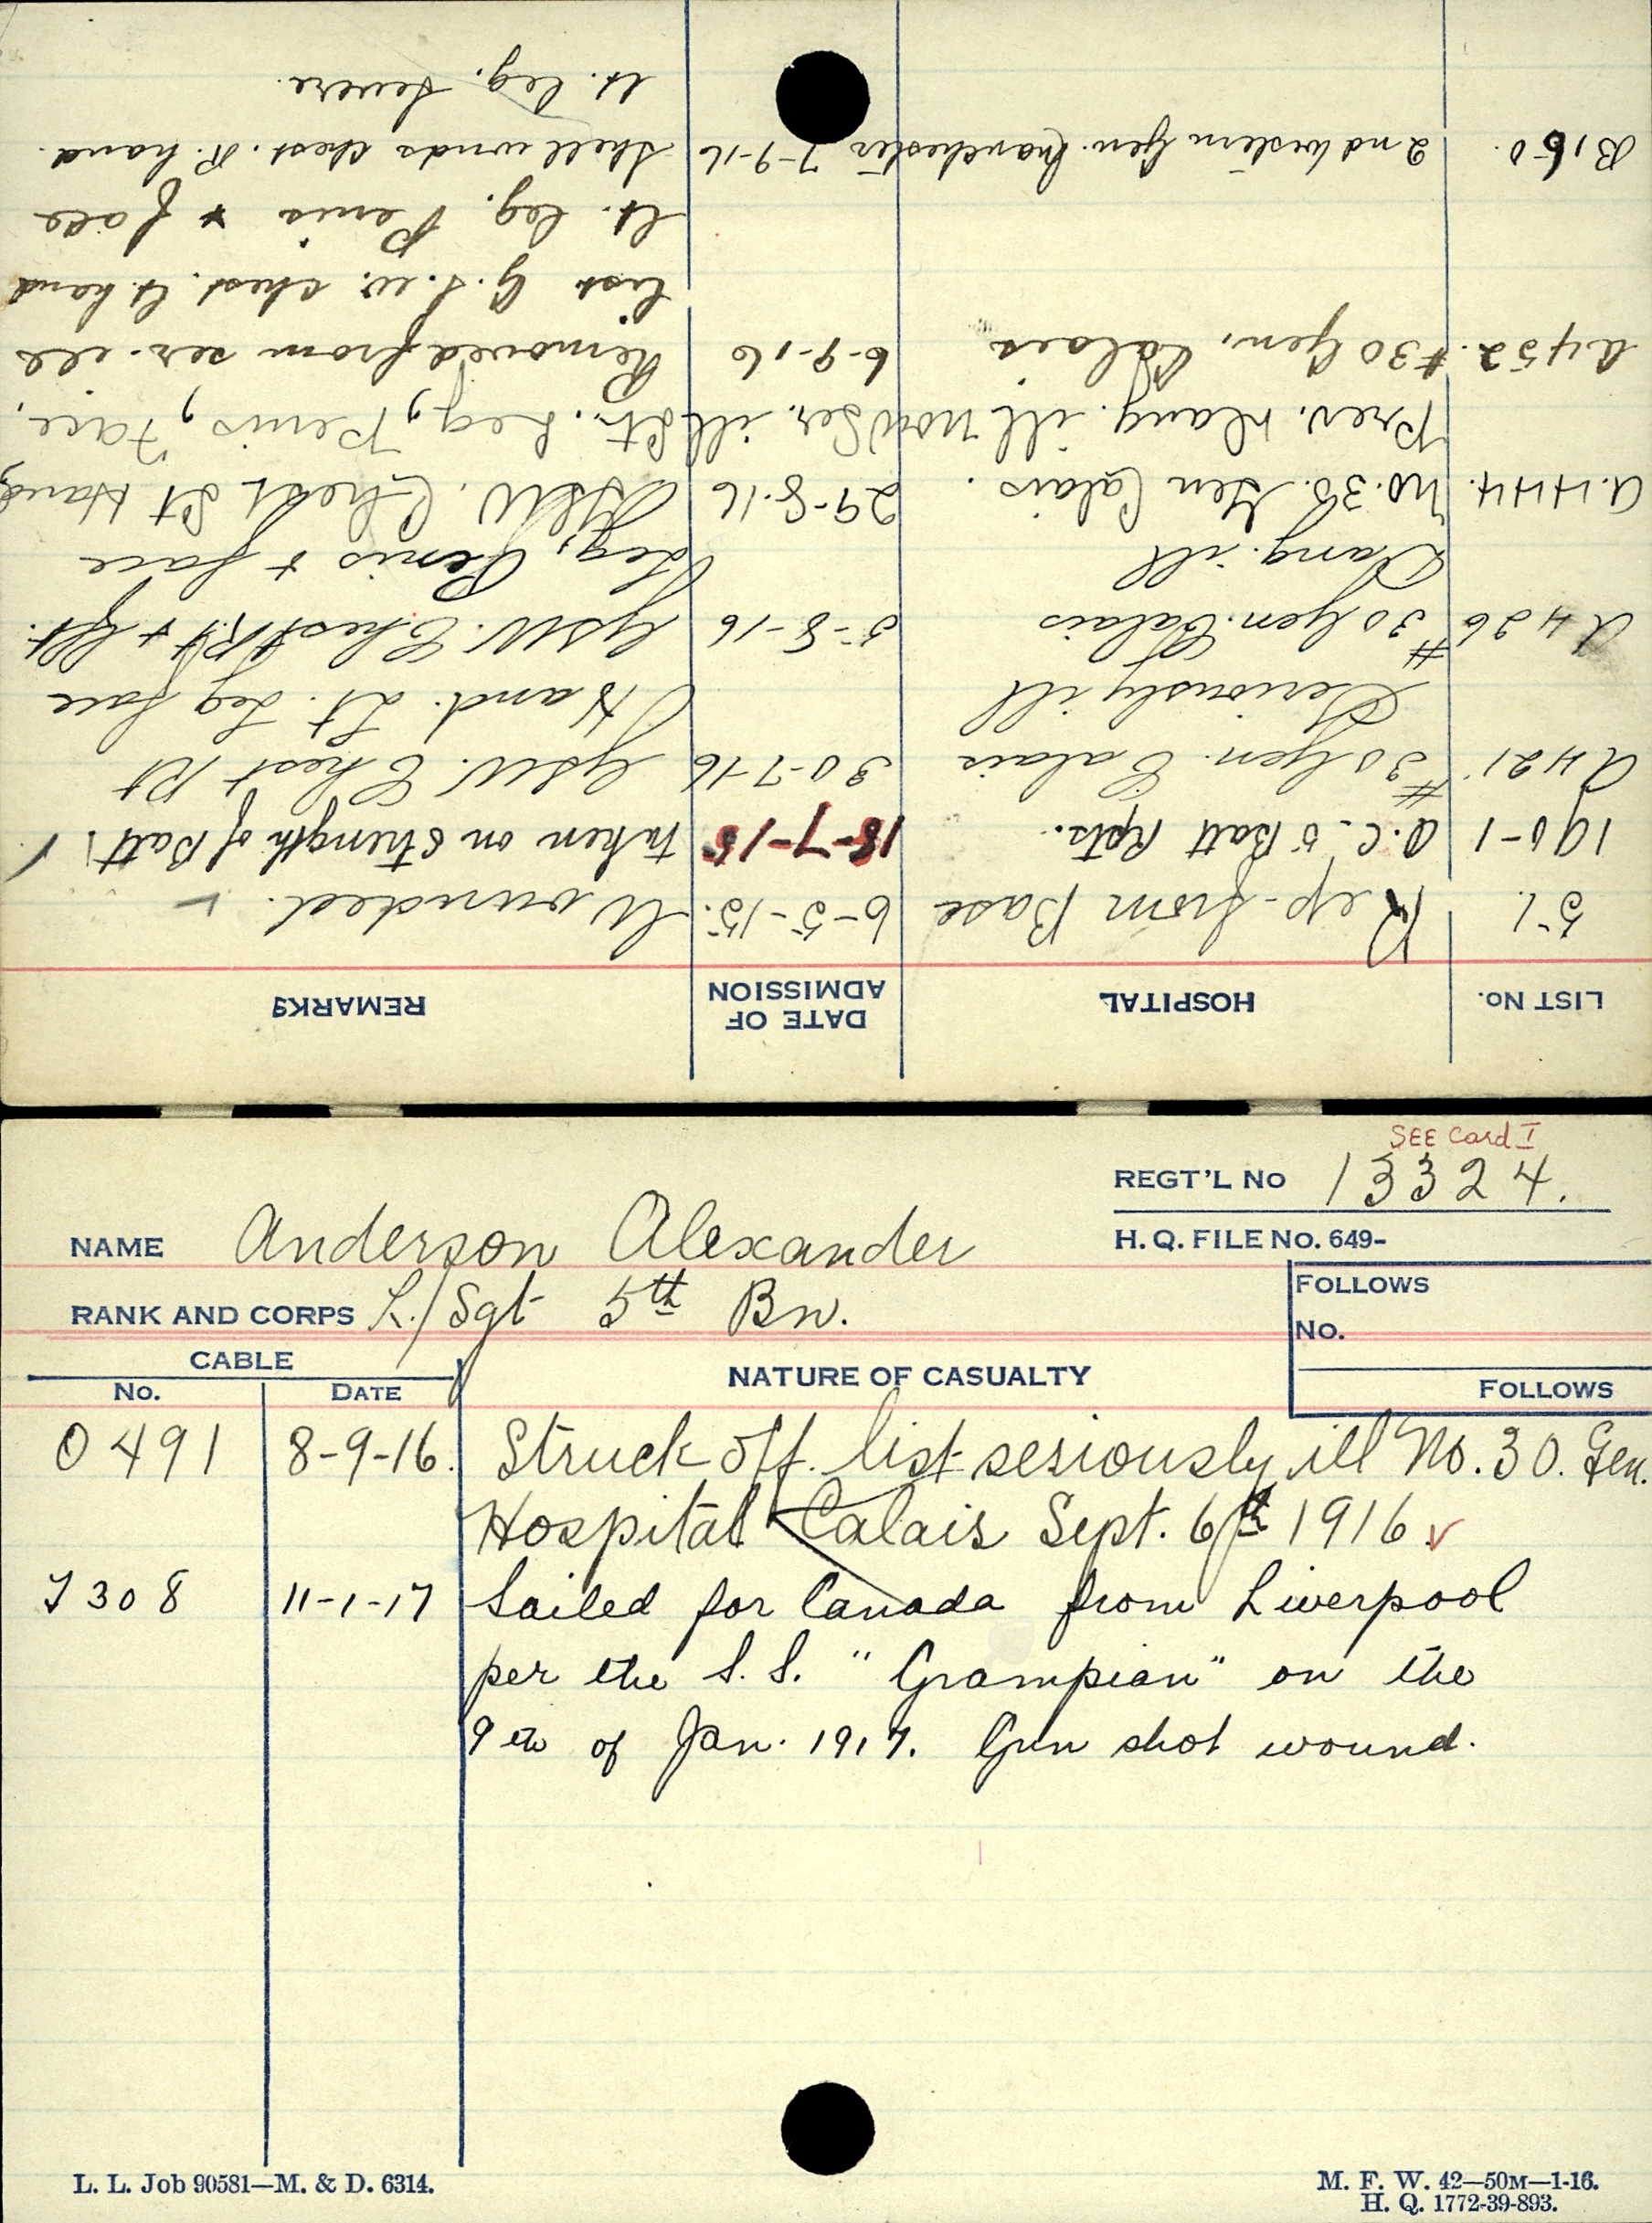 LIST No. HOSPITAL DATE OF ADMISSION REMARKS
51. Rep. from Base 6-5-15. Wounded.
190-1 O.C. 5 Batt Rpts. 18-7-15 taken on strength of Batt.
A421 #30 Gen. Calais 30-7-16 GSW. Chest Rt
Seriously ill Hand. Lt. Leg face
A426 #30 Gen. Calais 5-8-16 GSW. Chest Rt + Lft.
Dang. ill Leg, Penis + face
A.444. No. 30. Gen Calais. 29-8-16 GSW. Chest Lt Hand,
Prev. Dang. ill now Ser. ill Lt. Leg, Penis, Face,
A452. #30 Gen. Calais 6-9-16 Removed from ser. ill
list G.S.W. chest. lt. hand
lt. leg. Penis + face
B150. 2nd Western Gen. Manchester 7-9-16 Shell wnds chest. R. hand.
lt. leg. Severe.
SEE Card I
REGT'L No 13324.
NAME Anderson Alexander
H. Q. FILE No. 649-
RANK AND CORPS L/Sgt 5th Bn.
FOLLOWS
No.
FOLLOWS
CABLE
No. DATE
NATURE OF CASUALTY
0491 8-9-16. Struck off list seriously ill No. 30. Gen.
Hospital Calais Sept. 6th 1916
J308 11-1-17 Sailed for Canada from Liverpool
per the S.S. "Grampian" on the
9th of Jan. 1917. Gun shot wound.
L. L. Job 90581—M. & D. 6314.
M. F. W. 42—50M—1-16.
H. Q. 1772-39-893.